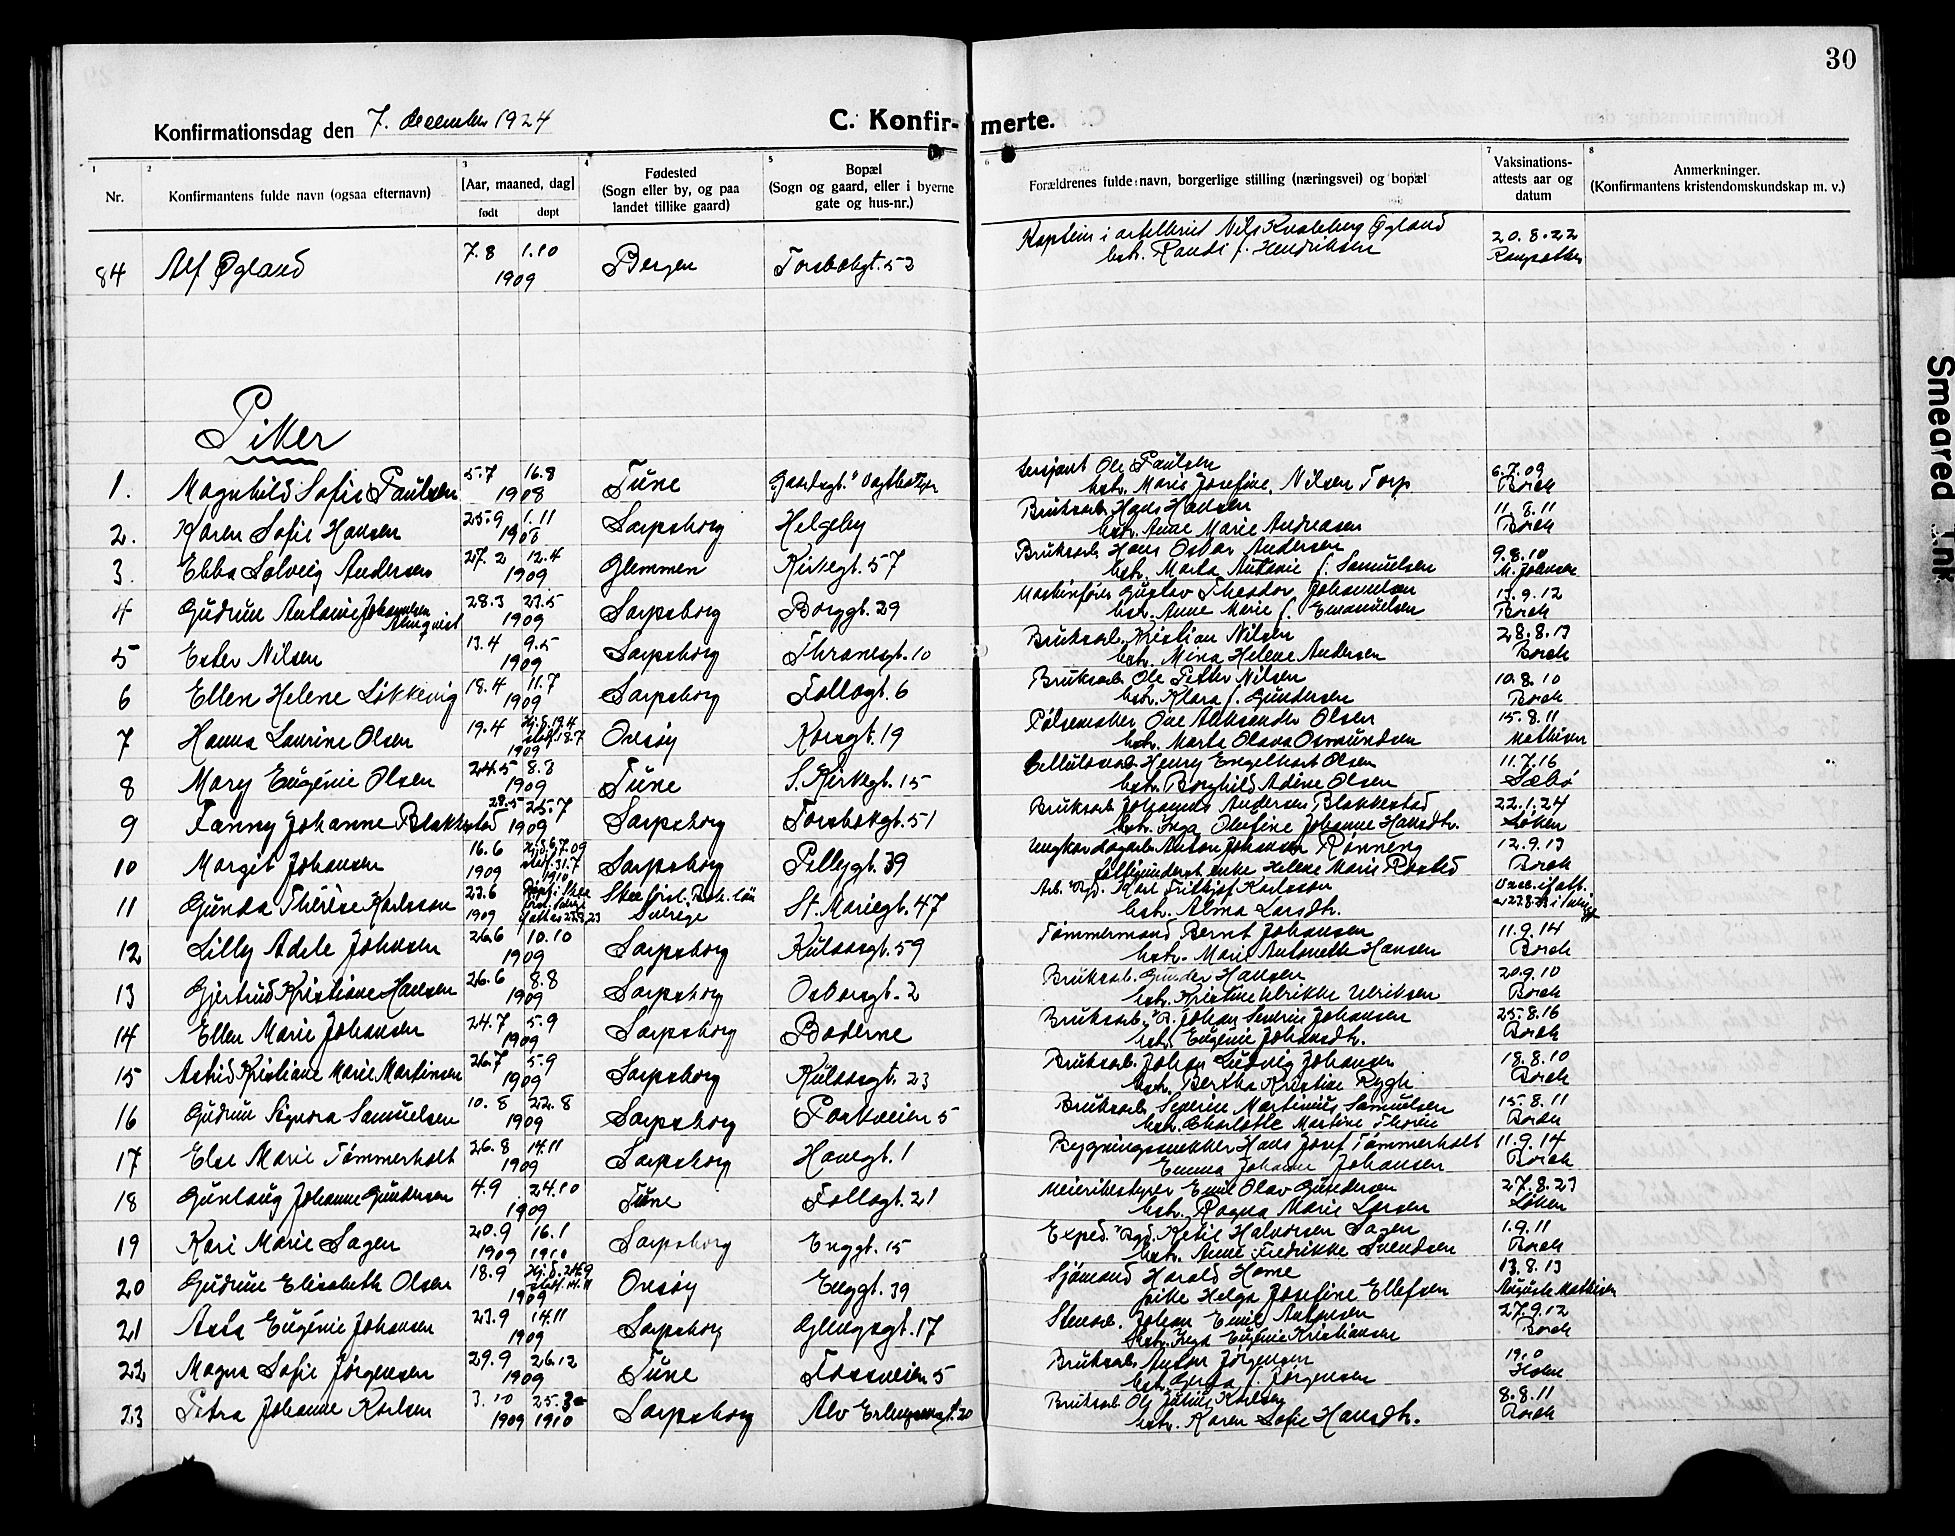 30
Konfirmationsdag den 7. december 1924
C. Konfirmerte.
1 2 3 4 5 6 7 8
Nr.
Konfirmantens fulde navn (ogsaa efternavn)
[Aar, maaned, dag]
født døpt
Fødested
(Sogn eller by, og paa
landet tillike gaard)
Bopæl
(Sogn og gaard, eller i byerne
gate og hus-nr.)
Forældrenes fulde navn, borgerlige stilling (næringsvei) og bopæl
Vaksinations-
attests aar og
datum
Anmerkninger.
(Konfirmantens kristendomskundskap m. v.)
84 Alf Øgland 7.8 1.10 1909 Bergen Torsbekgt. 52 Kaptein i artilleriet Nils Kvaleberg Øgland
hstr. Randi f. Hendriksen 20.8.22
Piker
1. Magnhild Sofie Paulsen 5.7 16.8 1908 Tune Sersjant Ole Paulsen
hstr. Marie Josefine Nilsen Torp 6.7.09 Borch
2. Karen Sofie Hansen 25.9 1.11 Sarpsborg Helgeby Bruksarb. Hans Hansen
hstr. Anne Marie Andreasen 11.8.11 Borch
3. Ebba Solveig Andersen 27.2 12.4 1909 Glemmen Kirkegt. 57 Bruksarb. Hans Oskar Andersen
hstr. Marta Antonie f. Samuelsen 9.8.10 M. Johnsen
4 Gudrun Antonie Johannesen Almqvist 28.3 23.5 1909 Sarpsborg Borggt. 29 Maskinfører Gustav Theodor Johannesen
hstr. Anne Marie f. Emanuelsen 15.9.12 Borch
5 Ester Nilsen 13.4 9.5 1909 Sarpsborg Thranesgt. 10 Bruksarb. Kristian Nilsen
hstr. Mina Helene Andersen 28.8.13 Borch
6 Ellen Helene Løkkevig 18.4 11.7 1909 Sarpsborg Follogt. 6 Bruksarb. Ole Petter Nilsen
hstr. Klara f. Gundersen 10.8.10 Borch
7 Hanna Laurine Olsen 19.4 Hj.d. 19.4 stadf. 18.7 1909 Onsøy Korsgt. 19 Pølsemaker Ove Aleksander Olsen
hstr. Marta Olava Osmundsen 15.8.11 Mathisen
8 Mary Eugénie Olsen 24.5 8.8 1909 Tune S. Kirkegt. 15 Cellulosearb. Henry Engelhart Olsen
hstr. Borghild Adine Olsen 11.7.16 Sæbø
9 Fanny Johanne Blakkestad 28.5 25.7 1909 Sarpsborg Torsbekgt. 51 Bruksarb. Johannes Andersen Blakkestad
hstr. Inga Olefine Johanne Hansdtr. 22.1.24 Løken
10 Margit Johansen 16.6 1909 Hj.d. 6.7.09 stadf. 31.7 1910 Sarpsborg Pellygt. 39 Ungkar Dagarb. Anton Johansen Rønneng
enke Helene Marie Rostad 12.9.13 Borch
11 Gunda Thérèse Karlsson 23.6 1909 Sverige St. Mariegt. 47 Arb. Karl Fritjof Karlsson
hstr. Alma Larsdtr.
12 Lilly Adele Johansen 26.6 10.10 1909 Sarpsborg Kulaasgt. 59 Tømmermand Bernt Johansen
hstr. Marie Antonette Hansen 11.9.14 Borch
13 Gjertrud Kristiane Hansen 26.6 8.8 1909 Sarpsborg Oskarsgt. 2 Bruksarb. Gunder Hansen
hstr. Kristine Ulrikke Ulriksen 20.9.10 Borch
14 Ellen Marie Johansen 24.7 5.9 1909 Sarpsborg Baderne Bruksarb. Johan Severin Johansen
hstr. Eugenie Johansdtr. 25.8.16 Borch
15 Astrid Kristiane Marie Martinsen 26.7 5.9 1909 Sarpsborg Kulaasgt. 23 Bruksarb. Johan Ludvig Johansen
hstr. Bertha Kristine Rygh 18.8.10 Borch
16 Gudrun Signora Samuelsen 10.8 22.8 1909 Sarpsborg Parkveien 5 Bruksarb. Severin Martinius Samuelsen
hstr. Charlotte Martine Thorine 15.8.11 Borch
17 Else Marie Tømmerholt 26.8 14.11 1909 Sarpsborg Havegt. 1 Bygningssnekker Hans Josef Tømmerholt
Emma Johanne Johansen 11.9.14 Borch
18 Gunlaug Johanne Gundersen 4.9 24.10 1909 Tune Follogt. 21 Meieribestyrer Emil Olav Gundersen
hstr. Ragna Marie Larsen 27.8.23 Løken
19 Kari Marie Sagen 20.9 1909 16.1 1910 Sarpsborg Enggt. 15 Exped. Ketil Halvorsen Sagen
hstr. Anne Fredrikke Svendsen 1.9.11 Borch
20 Gudrun Elisabeth Olsen 18.9 Hj.d. 24.9 stadf. 14.11 1909 Onsøy Enggt. 39 Sjømand Harald Horne
pike Helga Josefine Ellefsen 13.8.13 Auguste Mathisen
21 Asta Eugénie Johansen 23.9 14.11 1909 Sarpsborg Glengsgt. 17 Stenarb. Johan Emil Antonsen
hstr. Inga Eugenie Kristiansen 27.9.12 Borch
22 Magna Sofie Jørgensen 29.9 26.12 1909 Tune Fossveien 5 Bruksarb. Anton Jørgensen
hstr. Gerda f. Jørgensen Holm
23 Petra Johanne Karlsen 3.10 1909 25.3 1910 Sarpsborg Alv Erlingsensgt. 20 Bruksarb. Ole Julius Karlsen
hstr. Karen Sofie Hansdtr. 8.8.11 Borch
Smeared Ink